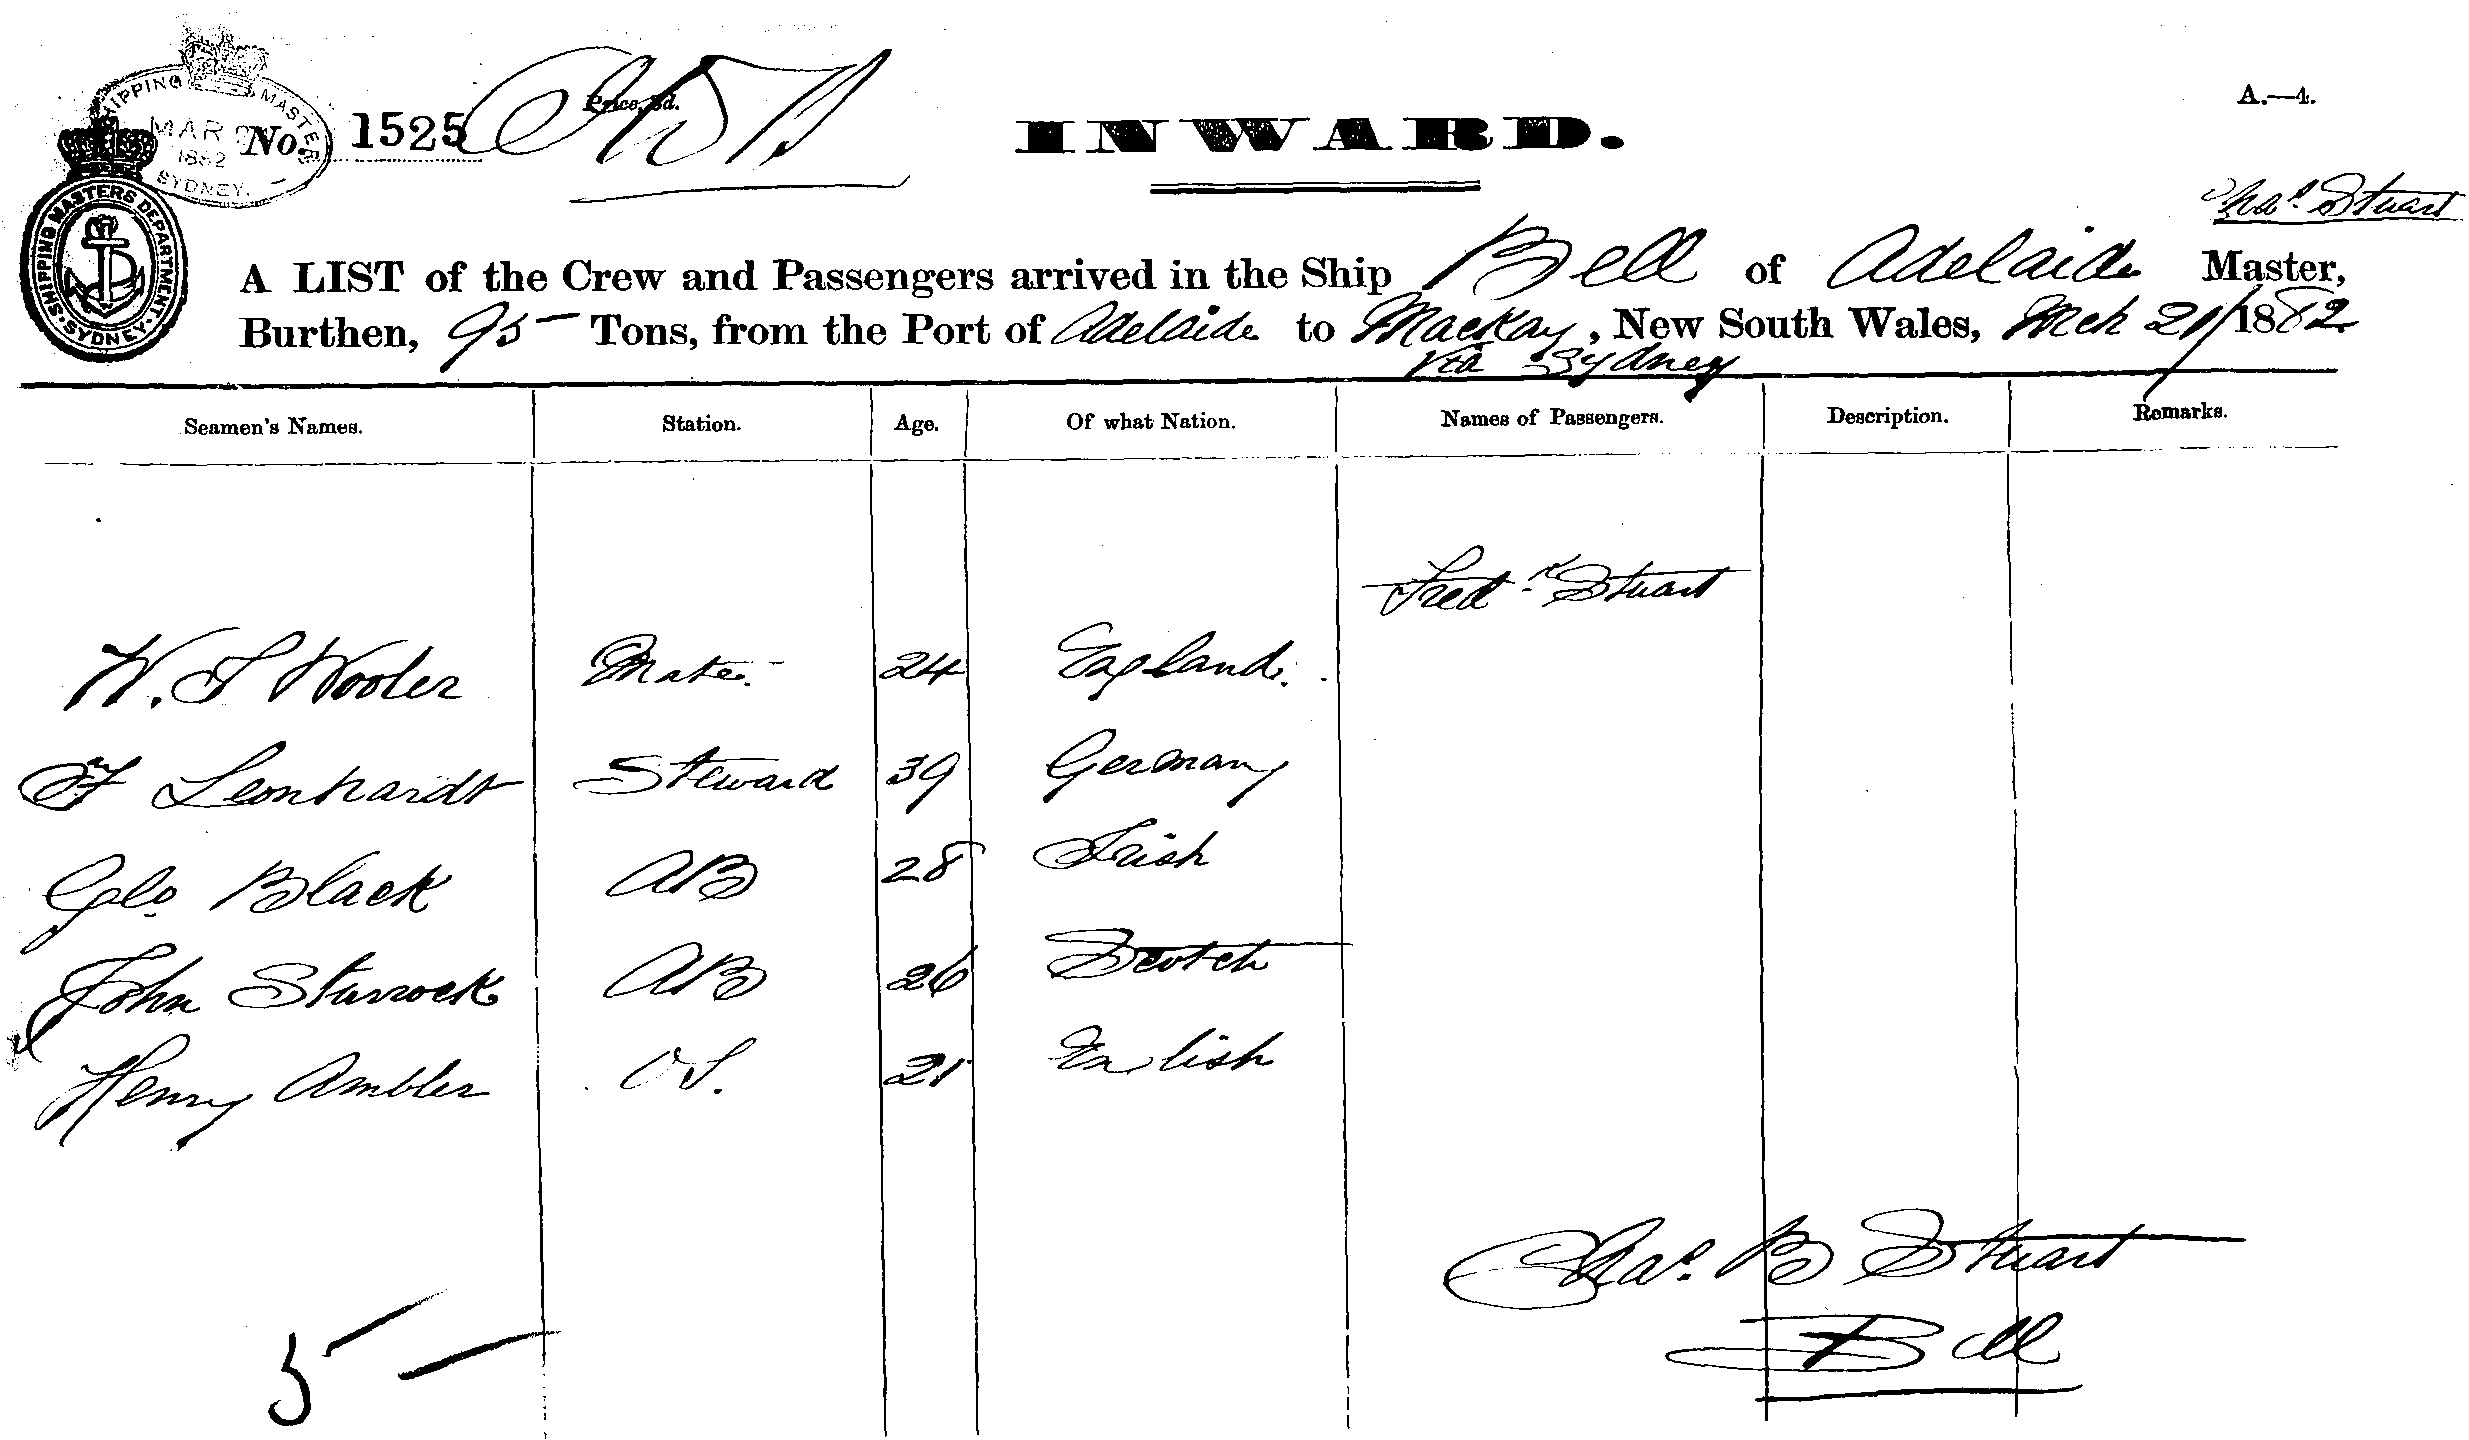 SHIPPING MASTER
MAR
1882
SYDNEY.
No. 1525
Price, d.
INWARD.
A.—4.
SHIPPING MASTERS DEPARTMENT. SYDNEY.
Chas Stuart
A LIST of the Crew and Passengers arrived in the Ship Bell of Adelaide Master,
Burthen, 95 Tons, from the Port of Adelaide to Mackay, New South Wales, Mch 21/1882
via Sydney
Seamen's Names. Station. Age. Of what Nation. Names of Passengers. Description. Remarks.
Fredk Stuart
W. S Wooler Mate 24 England.
F Leonhardt Steward 39 Germany
Geo. Black AB 28 Irish
John Sturrock AB 26 Scotch
Henry Ambler OS. 21 Enlish
Chas. B Stuart
Bell
5